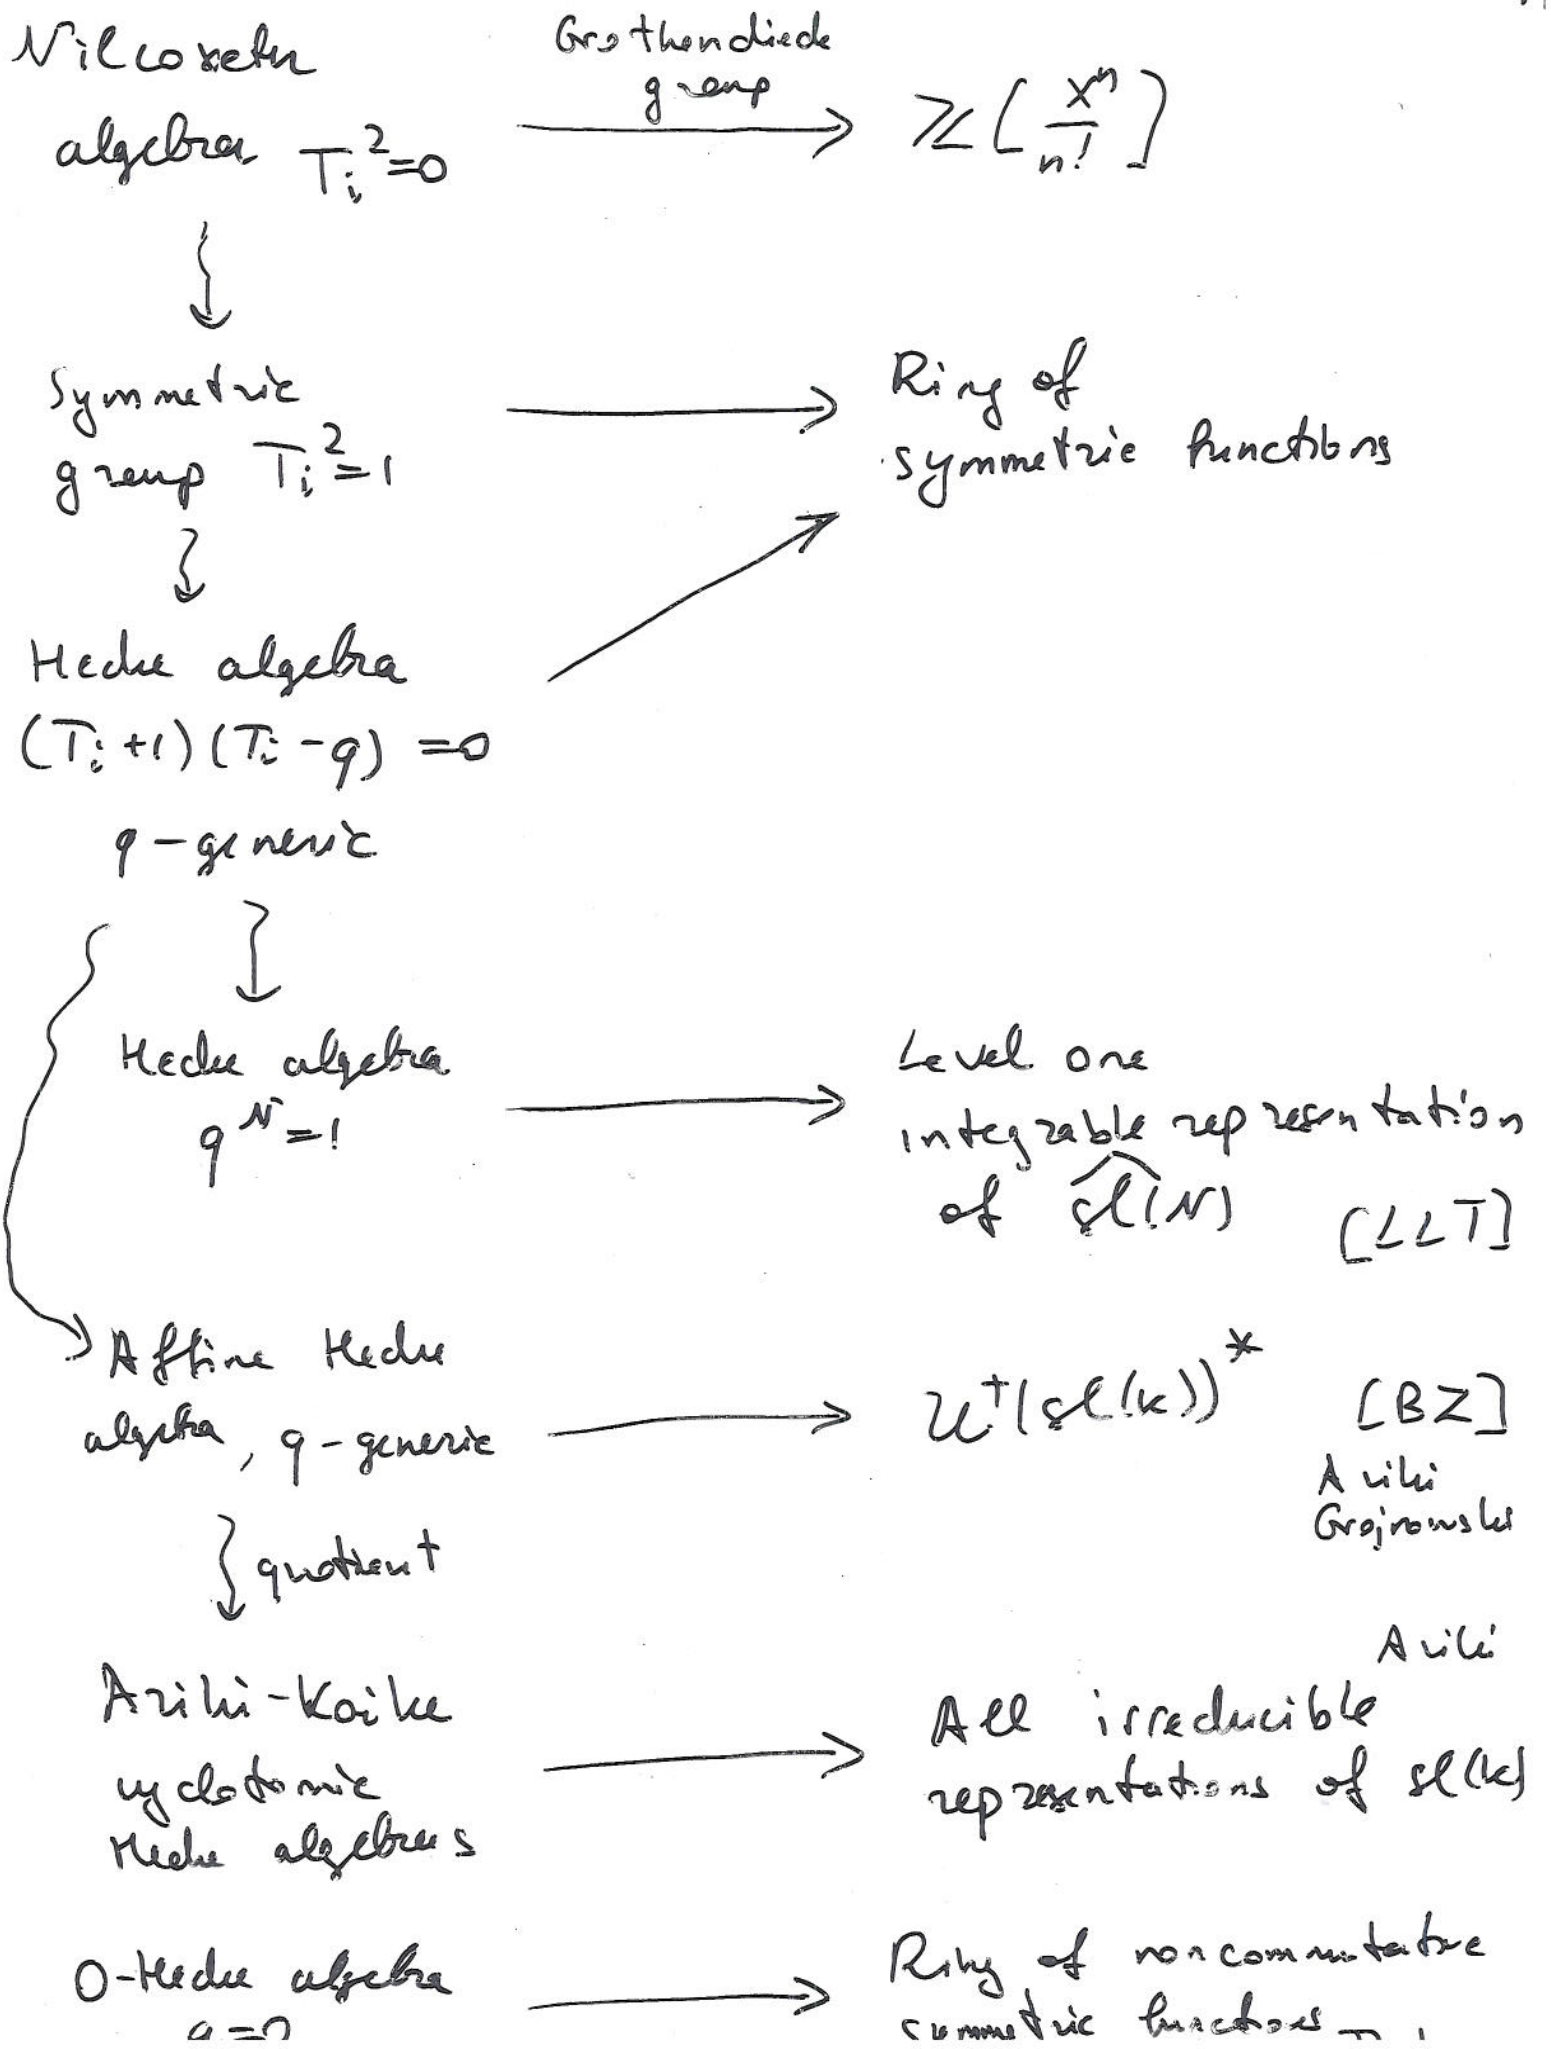 Nilcoxeter
algebra T_i^2=0
Grothendieck
group
ℤ[x^n/n!]
Symmetric
group T_i^2=1
Ring of
symmetric functions
Hecke algebra
(T_i+1)(T_i-q)=0
q-generic
Hecke algebra
q^N=1
Level one
integrable representation
of \widehat{sl}(N) [LLT]
Affine Hecke
algebra, q-generic
U^+(sl(k))^* [BZ]
Ariki
Grojnowski
quotient
Ariki-Koike
cyclotomic
Hecke algebras
Ariki
All irreducible
representations of sl(k)
0-Hecke algebra
q=0
Ring of noncommutative
symmetric functions